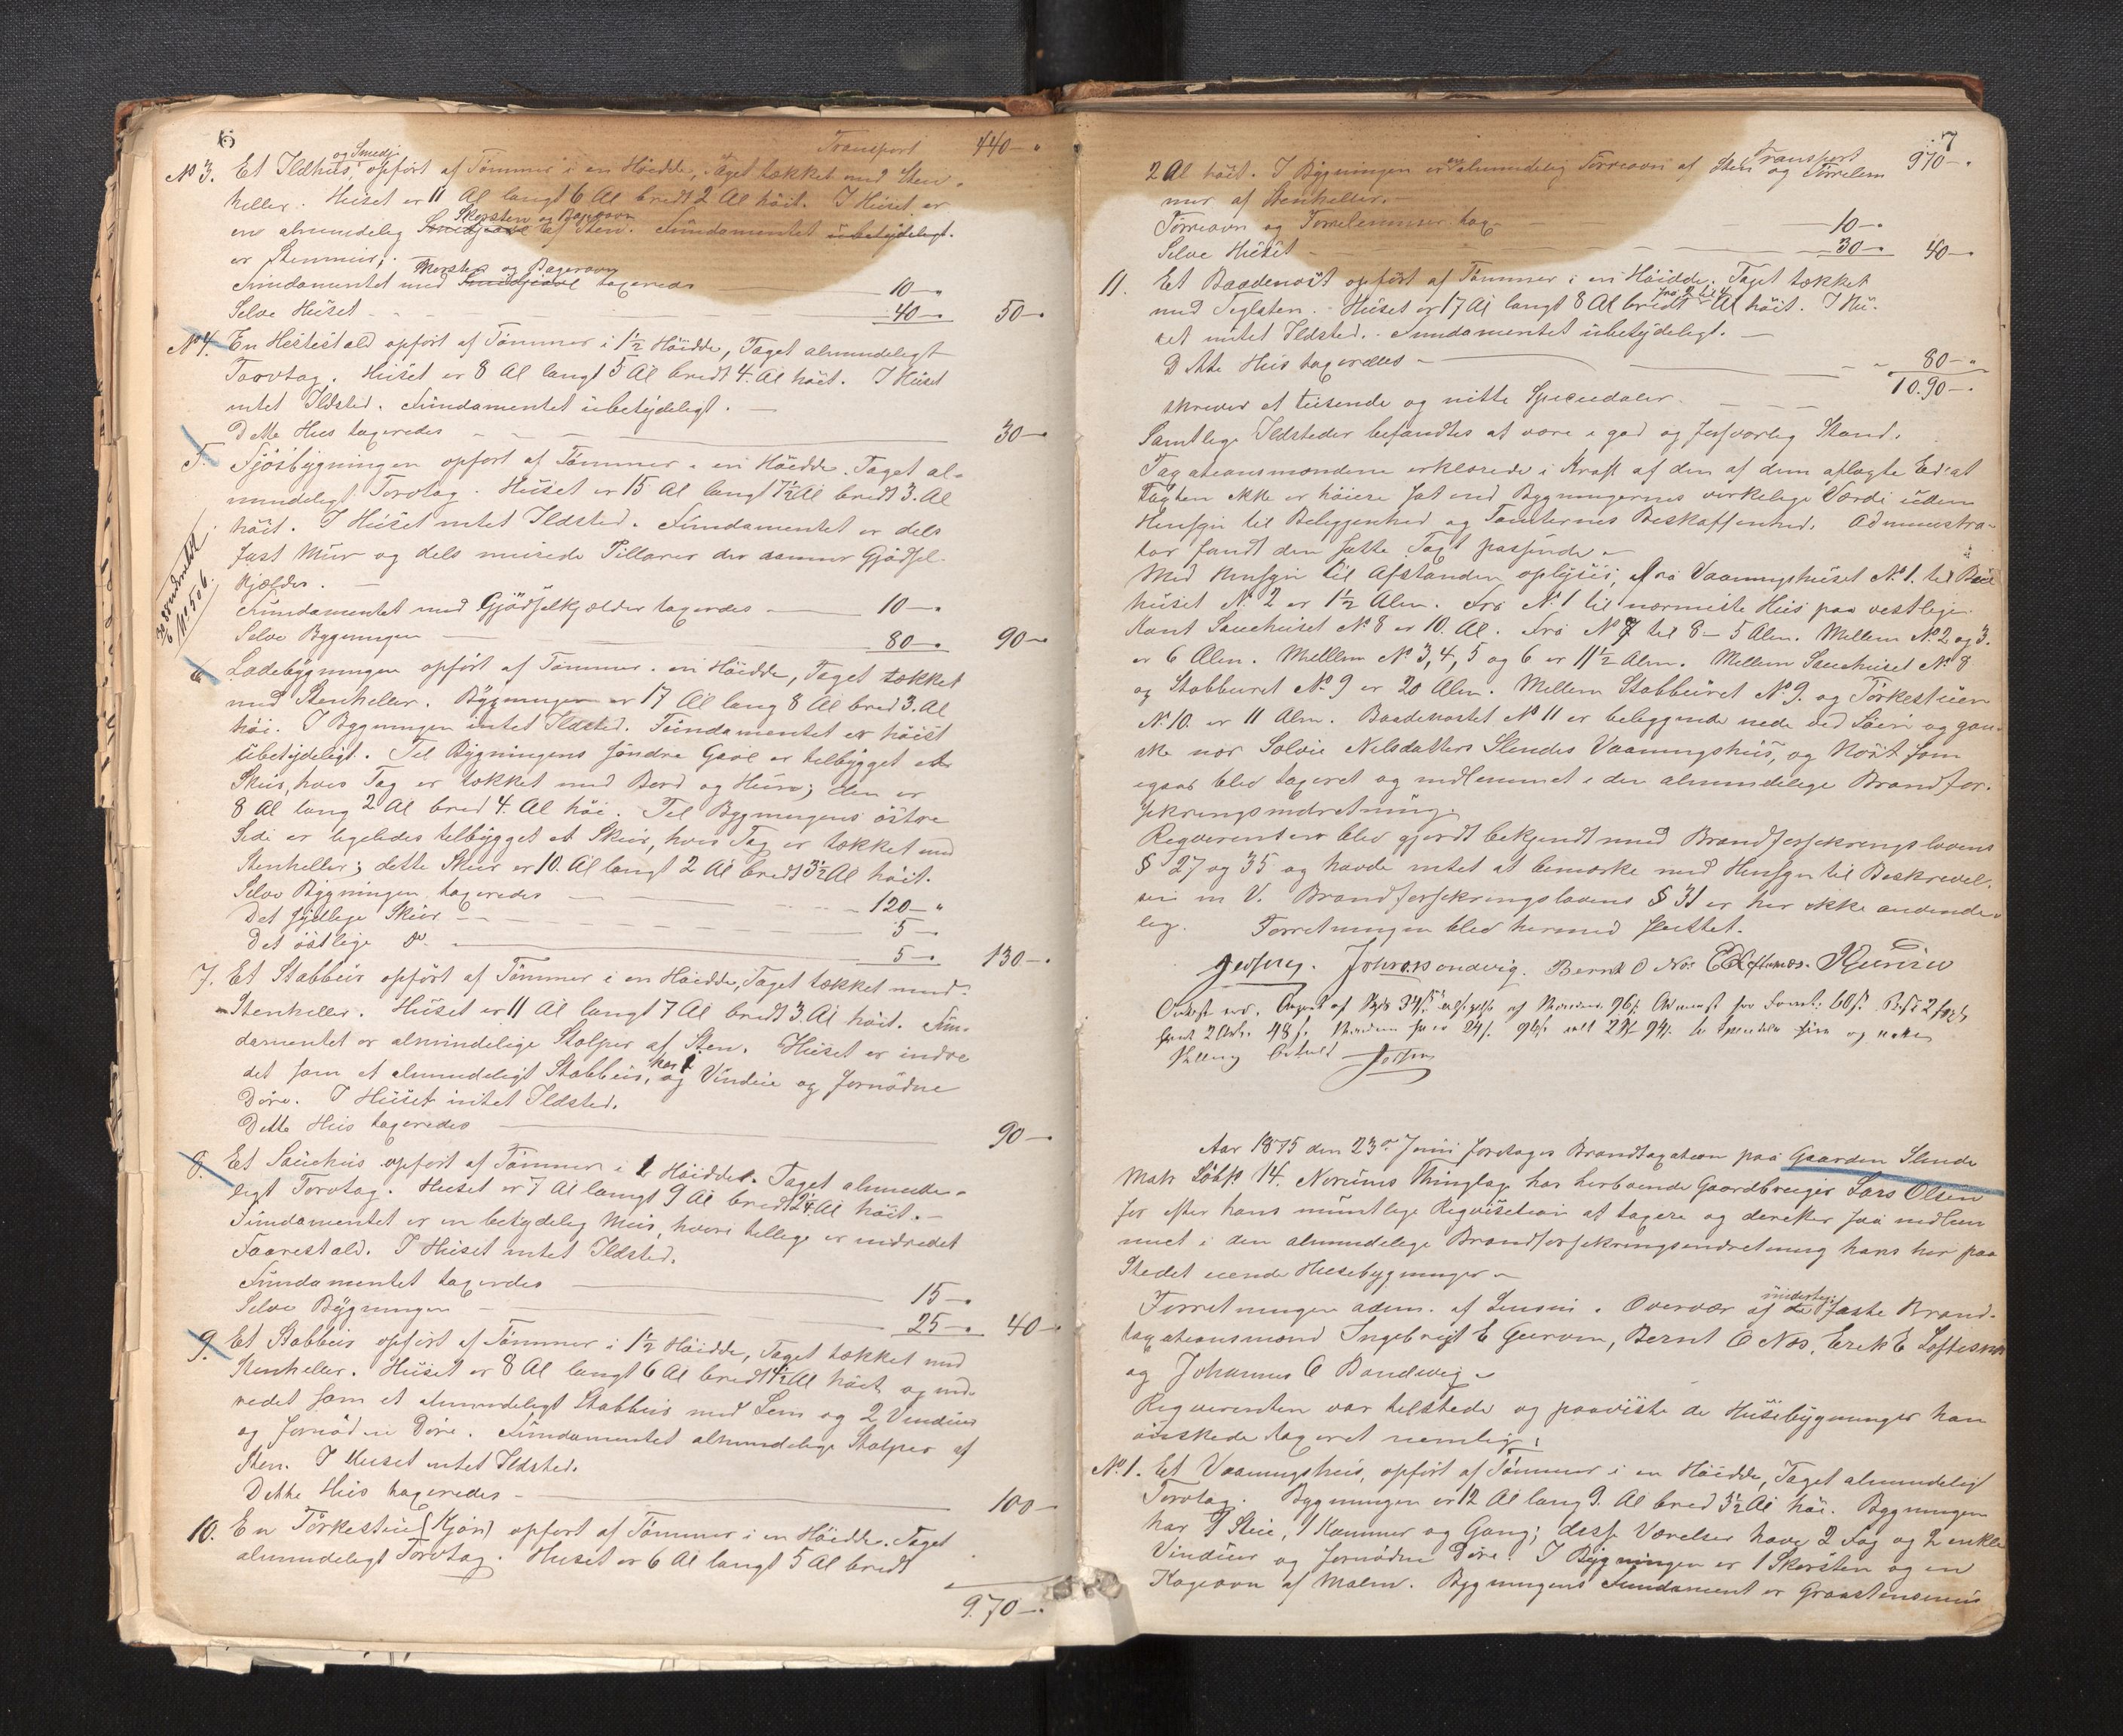 6
Transport 440–"
og Smedj
No 3. Et Ildhus, opført af Tømmer i en Höidde, Taget tækket med Sten-
heller. Huset er 11 Al langt 6 Al bredt 2 Al höit. I Huset er
Skorsten og Bagerovn
en almindelig af Sten. Fundamentet ubetydeligt.
er Stenmur;
Skorsten og Bagerovn
Fundamentet med taxeredes 10–"
Selve Huset 40–" 50–"
No 4. En Hestestald opfört af Tömmer i 1½ Höidde, Taget almindeligt
Torvtag. Huset er 8 Al langt 5 Al bredt 4. Al höit. I Huset
intet Ildsted. Fundamentet ubetydeligt. –
Dette Hus taxeredes 30–"
5. Fjösbygningen opfört af Tömmer i en Höidde. Taget al-
mindeligt Torvtag. Huset er 15 Al langt 7½ Al bredt 3. Al
höit. I Huset intet Ildsted. Fundamentet er dels
fast Mur og dels murede Pillarer der danner Gjödsel-
kjælder. –
Fundamentet med Gjödselkjælder taxeredes – 10–"
Selve Bygningen 80–" 90–"
No 506.
6. Ladebygningen opfört af Tömmer i en Höidde, Taget tækket
med Stenheller. Bygningen er 17 Al lang 8 Al bred 3. Al
höi. I Bygningen intet Ildsted. Fundamentet er höist
ubetydeligt. Til Bygningens söndre Gavl er tilbygget et
Skur, hvis Tag er tækket med Bord og Hun; den er
8 Al lang 2 Al bred 4. Al höi. Til Bygningens östre
Side er ligeledes tilbygget et Skur, hvis Tag er tækket med
Stenheller; dette Skur er 10. Al langt 2 Al bredt 3½ Al höit.
Selve Bygningen taxeredes 120–"
Det sydlige Skur 5–"
Det östlige do. 5–" 130–"
7. Et Stabbur opfört af Tömmer i en Höidde, Taget tækket med
Stenheller. Huset er 11 Al langt 7 Al bredt 3. Al höit. Fun-
damentet er almindelige Stolper af Sten. Huset er indre
det som et almindeligt Stabbur, har 1 og Vindue og fornødne
Döre. I Huset intet Ildsted.
Dette Hus taxeredes 90–"
8. Et Sauehus opfört af Tömmer i 1 Höidde. Taget alminde-
ligt Torvtag. Huset er 7 Al langt 9 Al bredt 2¼ Al höit. –
Fundamentet er en betydelig Mur, hvori tillige er indredet
Faarestald. I Huset intet Ildsted.
Fundamentet taxeredes 15–"
Selve Bygningen 25–" 40–"
9. Et Stabbur opfört af Tömmer i 1½ Höidde, Taget tækket med
Stenheller. Huset er 8 Al langt 6 Al bredt 4½ Al höit og ind-
redet som et almindeligt Stabbur med Lem og 2 Vinduer
og fornödne Döre. Fundamentet almindelige Stolper af
Sten. I Huset intet Ildsted.
Dette Hus taxeredes – 100–
10. En Törkestue (Kjön) opfört af Tömmer i en Höidde. Taget
almindeligt Torvtag. Huset er 6 Al langt 5 Al bredt
970–"
7
Transport 970–"
2 Al höit. I Bygningen er en almindelig Törreovn af Sten og Törrelem
mur af Stenheller. –
Törreovn og 10–"
Selve Huset 30–" 40–"
11. Et Baadenöst opfört af Tömmer i en Höidde. Taget tækket
fra 2 til 4
med Teglsten. Huset er 17 Al langt 8 Al bredt Al höit. I Hu-
set intet Ildsted. Fundamentet ubetydeligt. –
Dette Hus taxeredes – 80–"
10.90–"
skriver et tusende og nitti Speciedaler.
Samtlige Ildsteder befandtes at være i god og forsvarlig Stand.
Taxationsmændene erklærede i Kraft af den af dem aflagte Ed, at
Taxten ikke er höiere sat end Bygningernes virkelige Værdi uden
Hensyn til Beliggenhed og Tomternes Beskaffenhed. Administra-
tor fandt den satte Taxt passende –
Med Hensyn til Afstanden oplyses, at fra Vaaningshuset No. 1. til
huset No 2 er 1½ Alen. Fra No. 1 til nærmeste Hus paa vestlige
Kant Sauehuset No 8 er 10. Al. Fra No 7 til 8 – 5 Alen. Mellem No 2 og 3.
er 6 Alen. Mellem No 3, 4, 5 og 6 er 11½ Alen. Mellem Sauehuset No 8
og Stabburet No 9 er 20 Alen. Mellem Stabburet No 9. og Törkestuen
No 10. er 11 Alen. Baadenøstet No 11 er beliggende nede ved Söen og gan-
ske nær Solvie Nilsdatters Slindes Vaaningshus, og Nöst som
igaar blev taxeret og indlemmet i den almindelige Brandfor-
sikringsindretning.
Reqverenten blev gjordt bekjendt med Brandforsikringslovens
§ 27 og 35 og havde intet at bemærke med Hensyn til Beskrivel-
sen m. V. Brandforsikringslovens § 31 er her ikke anvende-
lig. Forretningen blev hermed sluttet.
Bernt O Næs
Aar 1875 den 23de Juni foretages Brandtaxation paa Gaarden Slinde
Matr Löbn 14. Norums Thinglag hos herboende Gaardbruger Lars Olsen
for efter hans muntlige Reqvisition at taxere og derefter faa indlem
met i den almindelige Brandforsikringsindretning hans her paa
Stedet værende Husebygninger –
Forretningen adm. af Overvær af de faste Brand-
taxationsmænd Ingebrigt E Gurvin, Bernt O Næs, Erik E Loftesnæs
og Johannes O Bondevig –
Reqverenten var tilstede og paaviste de Husebygninger han
önskede taxeret nemlig:
No. 1. Et Vaaningshus, opfört af Tömmer i en Höidde, Taget almindeligt
Torvtag. Bygningen er 12 Al lang 9. Al bred 3½ Al höi. Bygningen
har 1 Stue, 1 Kammer og Gang; disse Værelser have 2 Fag og 2 enkle
Vinduer og fornødne Döre. I Bygningen er 1 Skorsten og en
Kogeovn af Malm. Bygningens Fundament er Graastensmur